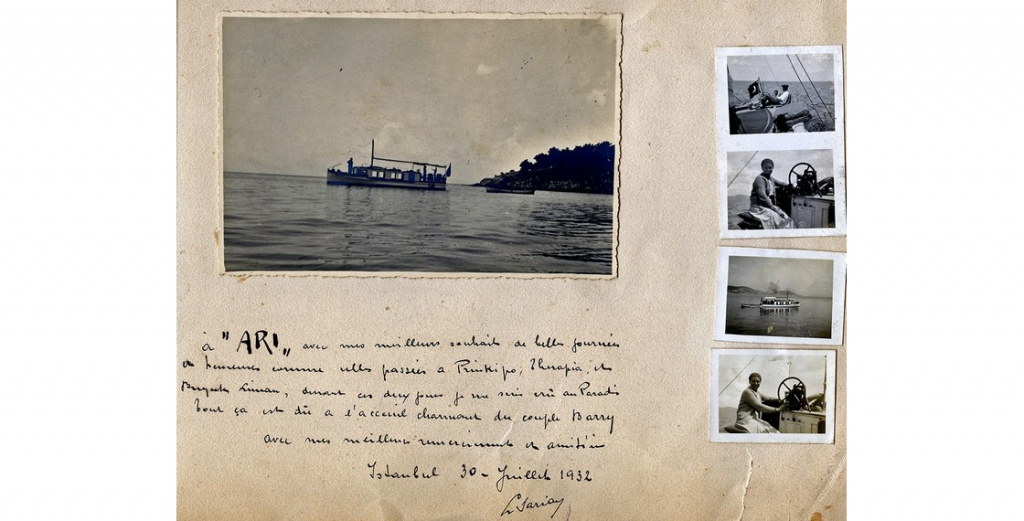 à "ARI„ avec mes meilleurs souhaits de belles journées
heureuses comme elles passées à Prinkipo, Therapia, et
Liman, durant ces deux jours je me suis crû au Paradis
Tout ça est dû a l'acceuil charmant du couple Barry
avec mes meilleurs remerciements et amitiés
Istanbul 30 - Juillet 1932